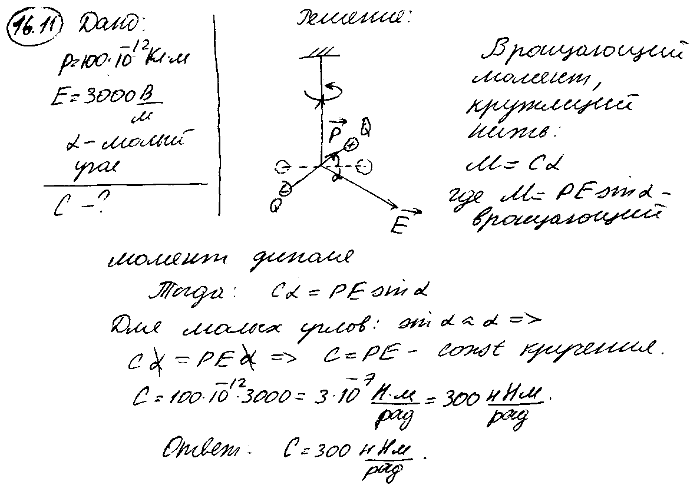 16.11 Дано:
P=100·10⁻¹² Кл·м
E=3000 В/м
α – малый
угол
C – ?
Решение:
P⃗
Q
α
Q
E⃗
Вращающий
момент,
кружащий
нить:
M = Cα
где M = PE sinα –
вращающий
момент диполя
Тогда: Cα = PE sinα
Для малых углов: sinα ≈ α =>
Cα = PEα => C = PE – const кручения.
C = 100·10⁻¹²·3000 = 3·10⁻⁷ Н·м/рад = 300 нНм/рад.
Ответ: C = 300 нНм/рад.